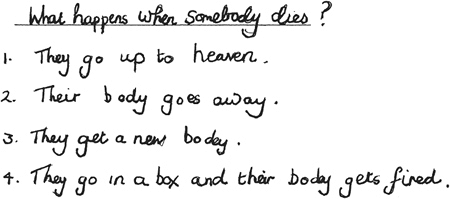 What happens when somebody dies?
1. They go up to heaven.
2. Their body goes away.
3. They get a new bodey.
4. They go in a box and their body gets fired.